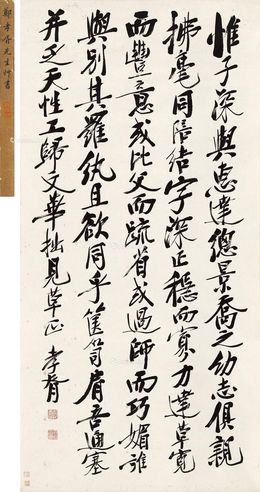 惟子深與忘達總景喬之幼志俱
拂毫同陪結字深正穩而寡力達草寬
而豐意或比父而疏省或過師而巧媚誰
與別其羅紈且欲同乎筐笥肩吾通塞
并乏天性工歸文華拙見草正 孝胥
鄭孝胥先生行書